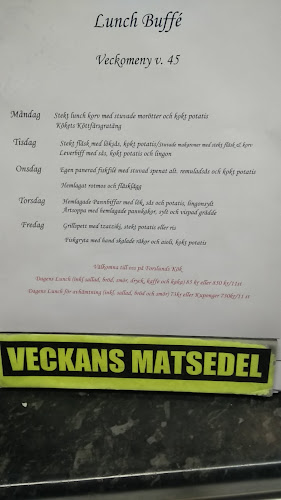 Lunch Buffé
Veckomeny v. 45
Måndag Stekt lunch korv med stuvade morötter och kokt potatis
Kökets Köttfärsgratäng
Tisdag Stekt fläsk med löksås, kokt potatis/stuvade makaroner med stekt fläsk & korv
Leverbiff med sås, kokt potatis och lingon
Onsdag Egen panerad fiskfilé med stuvad spenat alt. remuladsås och kokt potatis
Hemlagat rotmos och fläsklägg
Torsdag Hemlagade Pannbiffar med lök, sås och potatis, lingonsylt
Ärtsoppa med hemlagade pannkakor, sylt och vispad grädde
Fredag Grillspett med tzatziki, stekt potatis eller ris
Fiskgryta med hand skalade räkor och aioli, kokt potatis
Välkomna till oss på Torslunds Kök
Dagens Lunch (inkl sallad, bröd, smör, dryck, kaffe och kaka) 85 kr eller 850 kr/11st
Dagens Lunch för avhämtning (inkl. sallad, bröd och smör) 75kr eller Kuponger 750kr/11 st
VECKANS MATSEDEL